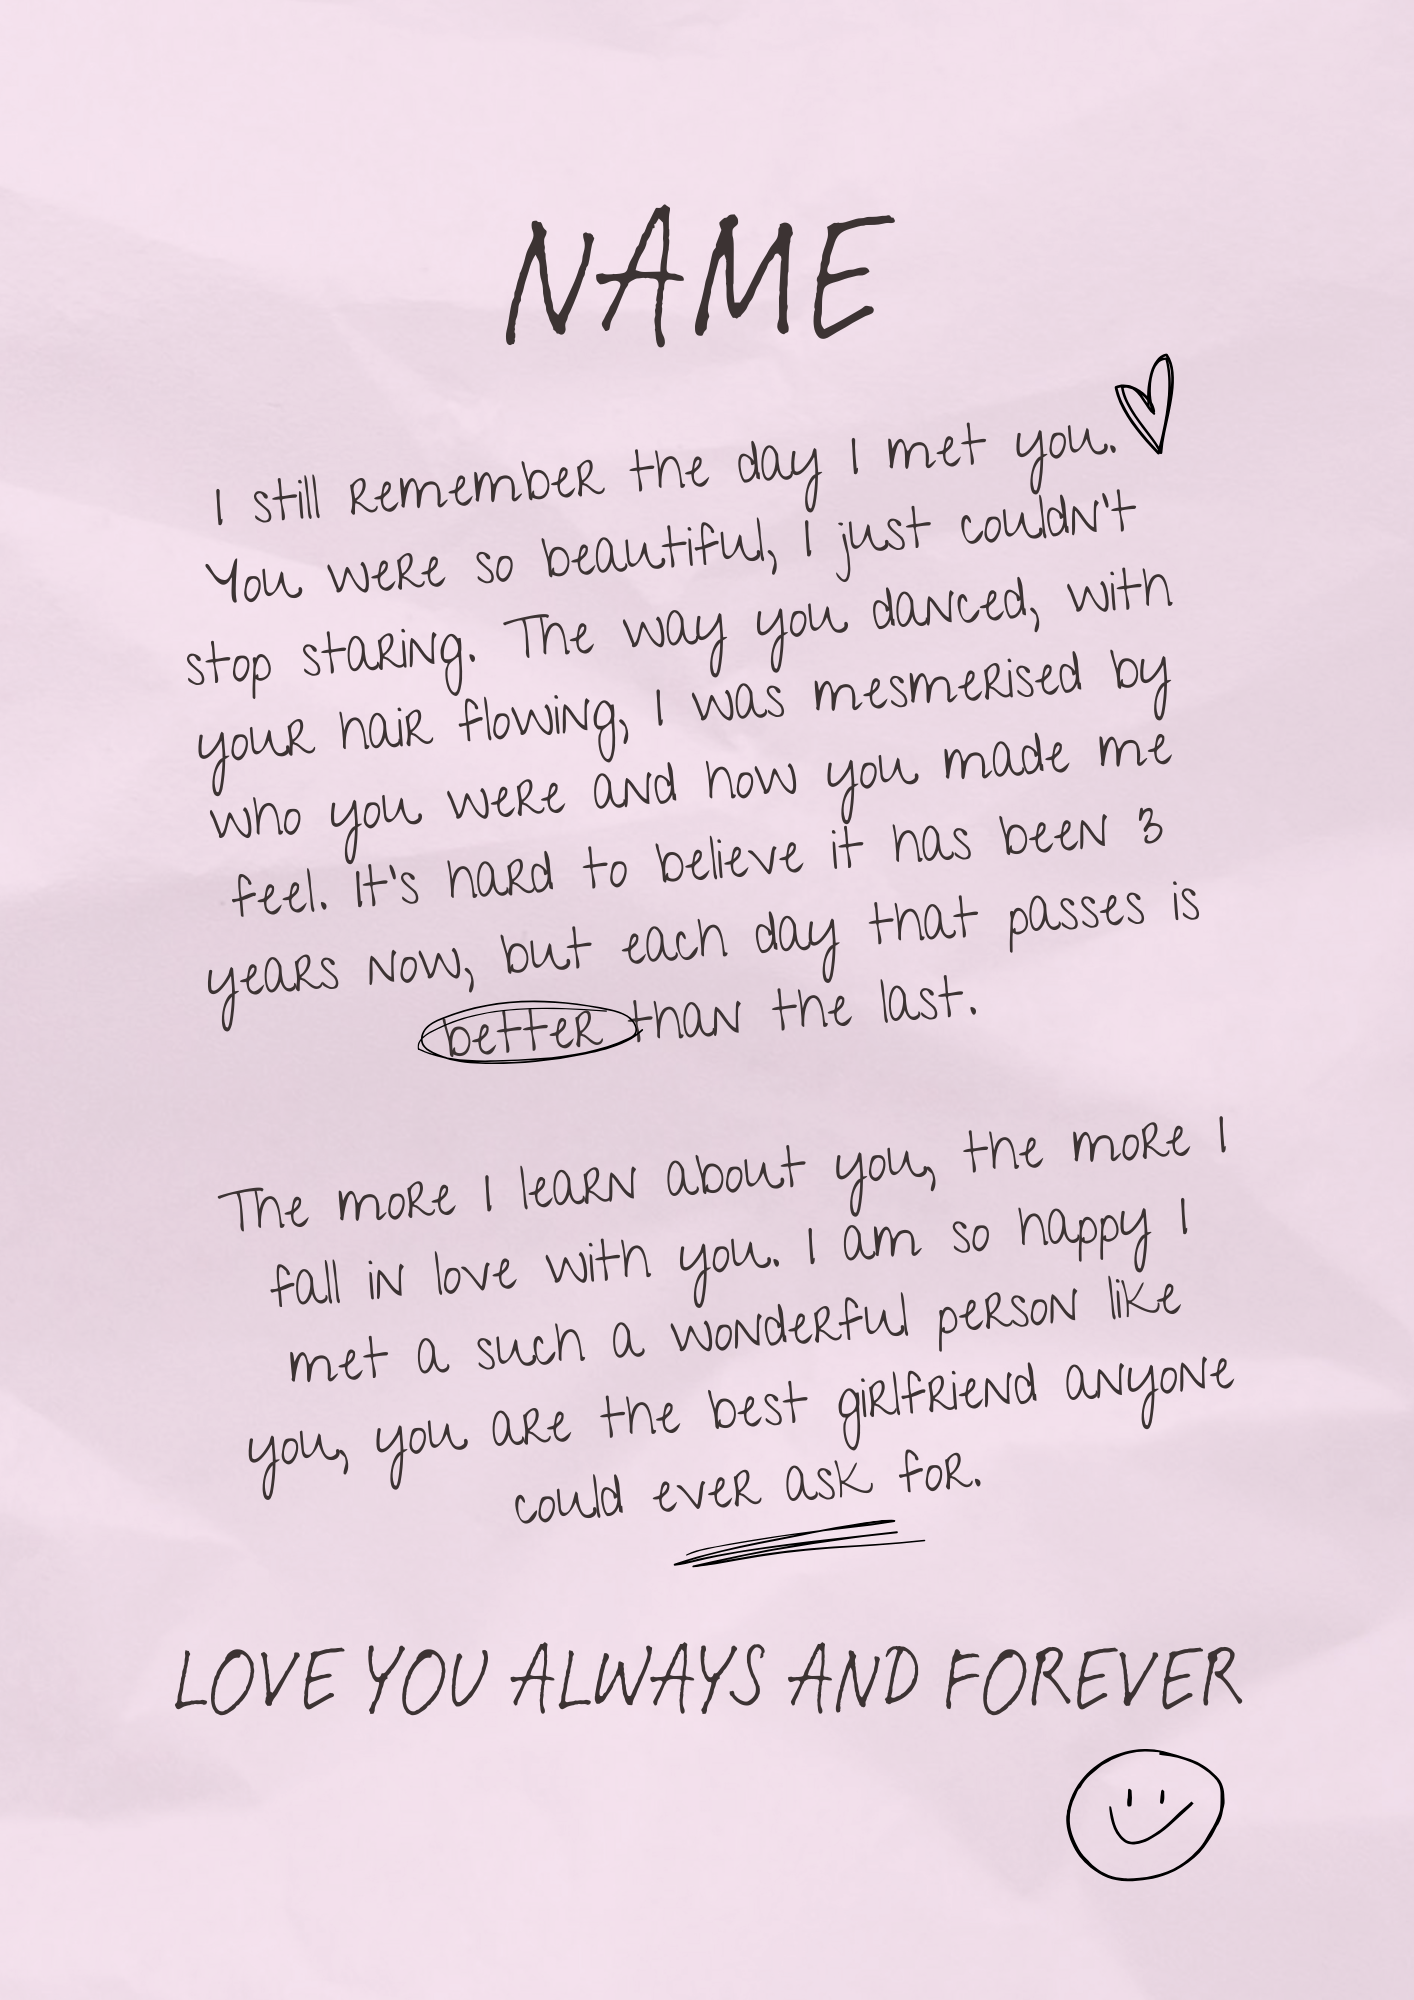 NAME
I still remember the day I met you.
You were so beautiful, I just couldn't
stop staring. The way you danced, with
your hair flowing, I was mesmerised by
who you were and how you made me
feel. It's hard to believe it has been 3
years now, but each day that passes is
better than the last.
The more I learn about you, the more I
fall in love with you. I am so happy I
met a such a wonderful person like
you, you are the best girlfriend anyone
could ever ask for.
LOVE YOU ALWAYS AND FOREVER